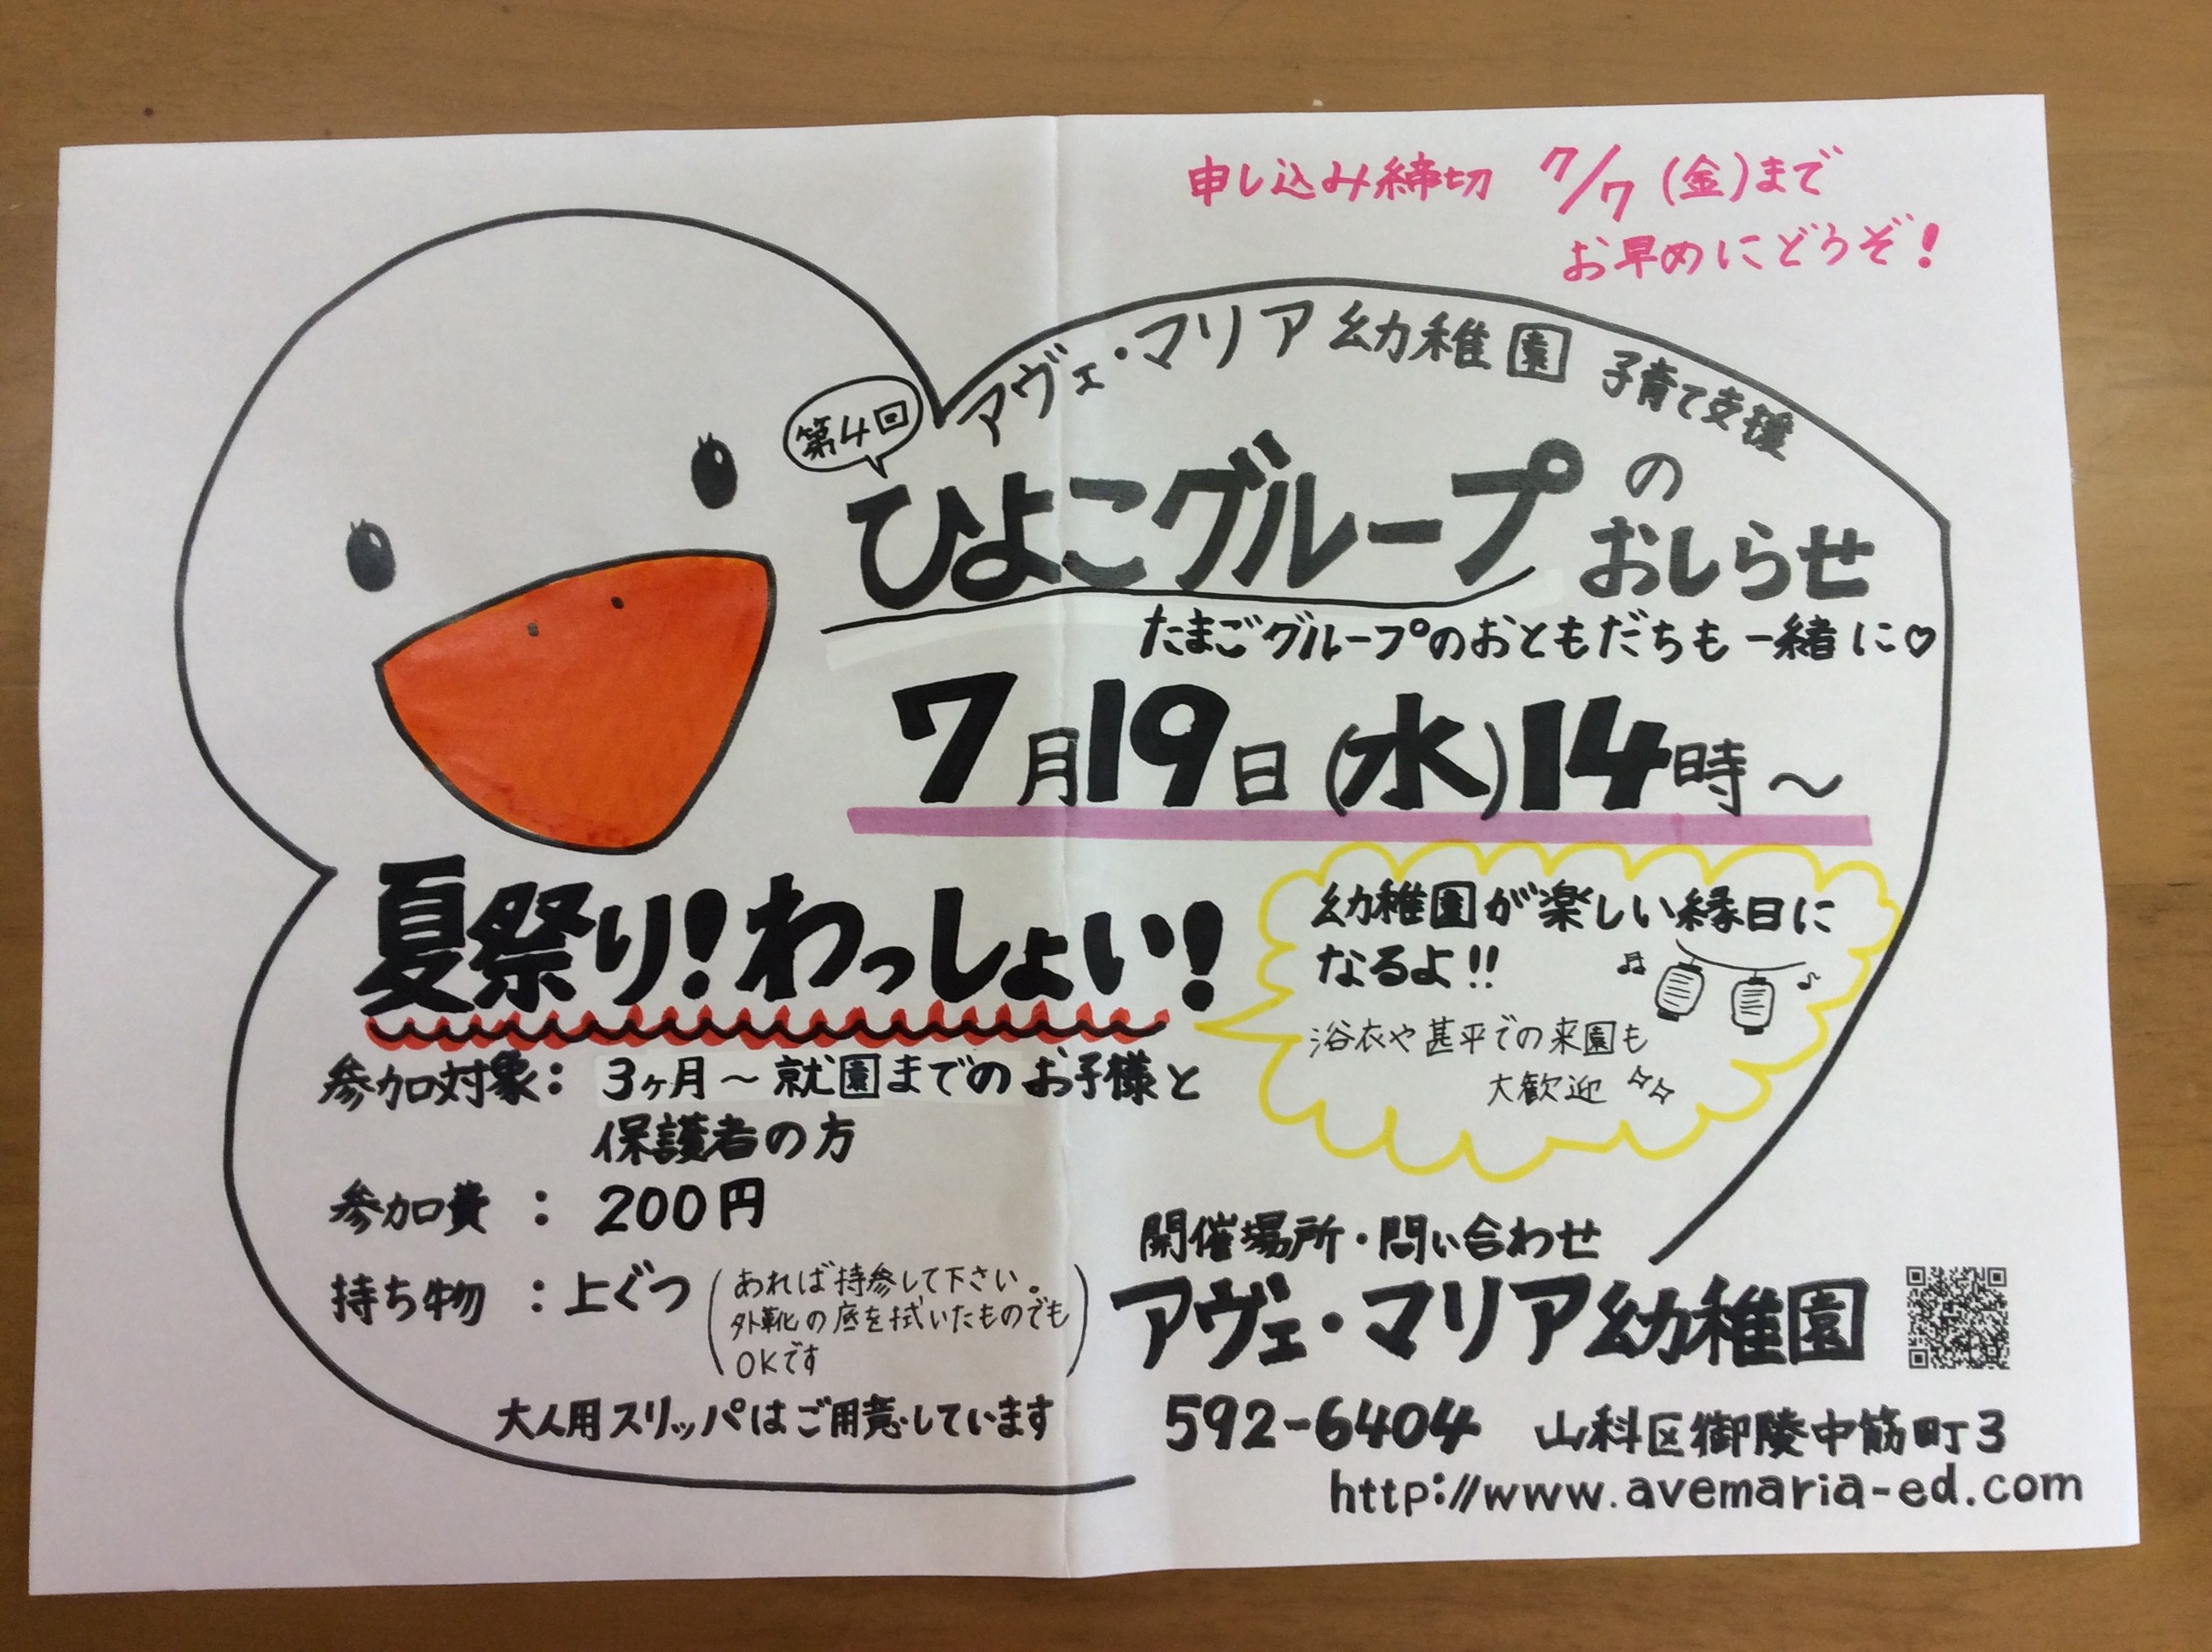 申し込み締切 7/7(金)まで
お早めにどうぞ!
アヴェ・マリア幼稚園 子育て支援
第4回
ひよこグループの
おしらせ
たまごグループのおともだちも一緒に♡
7月19日(水)14時〜
夏祭り!わっしょい!
幼稚園が楽しい縁日に
なるよ!!
浴衣や甚平での来園も
大歓迎
参加対象: 3ヶ月〜就園までのお子様と
保護者の方
参加費 : 200円
持ち物 :上ぐつ(あれば持参して下さい。
外靴の底を拭いたものでも
OKです)
大人用スリッパはご用意しています
開催場所・問い合わせ
アヴェ・マリア幼稚園
592-6404 山科区御陵中筋町3
http://www.avemaria-ed.com